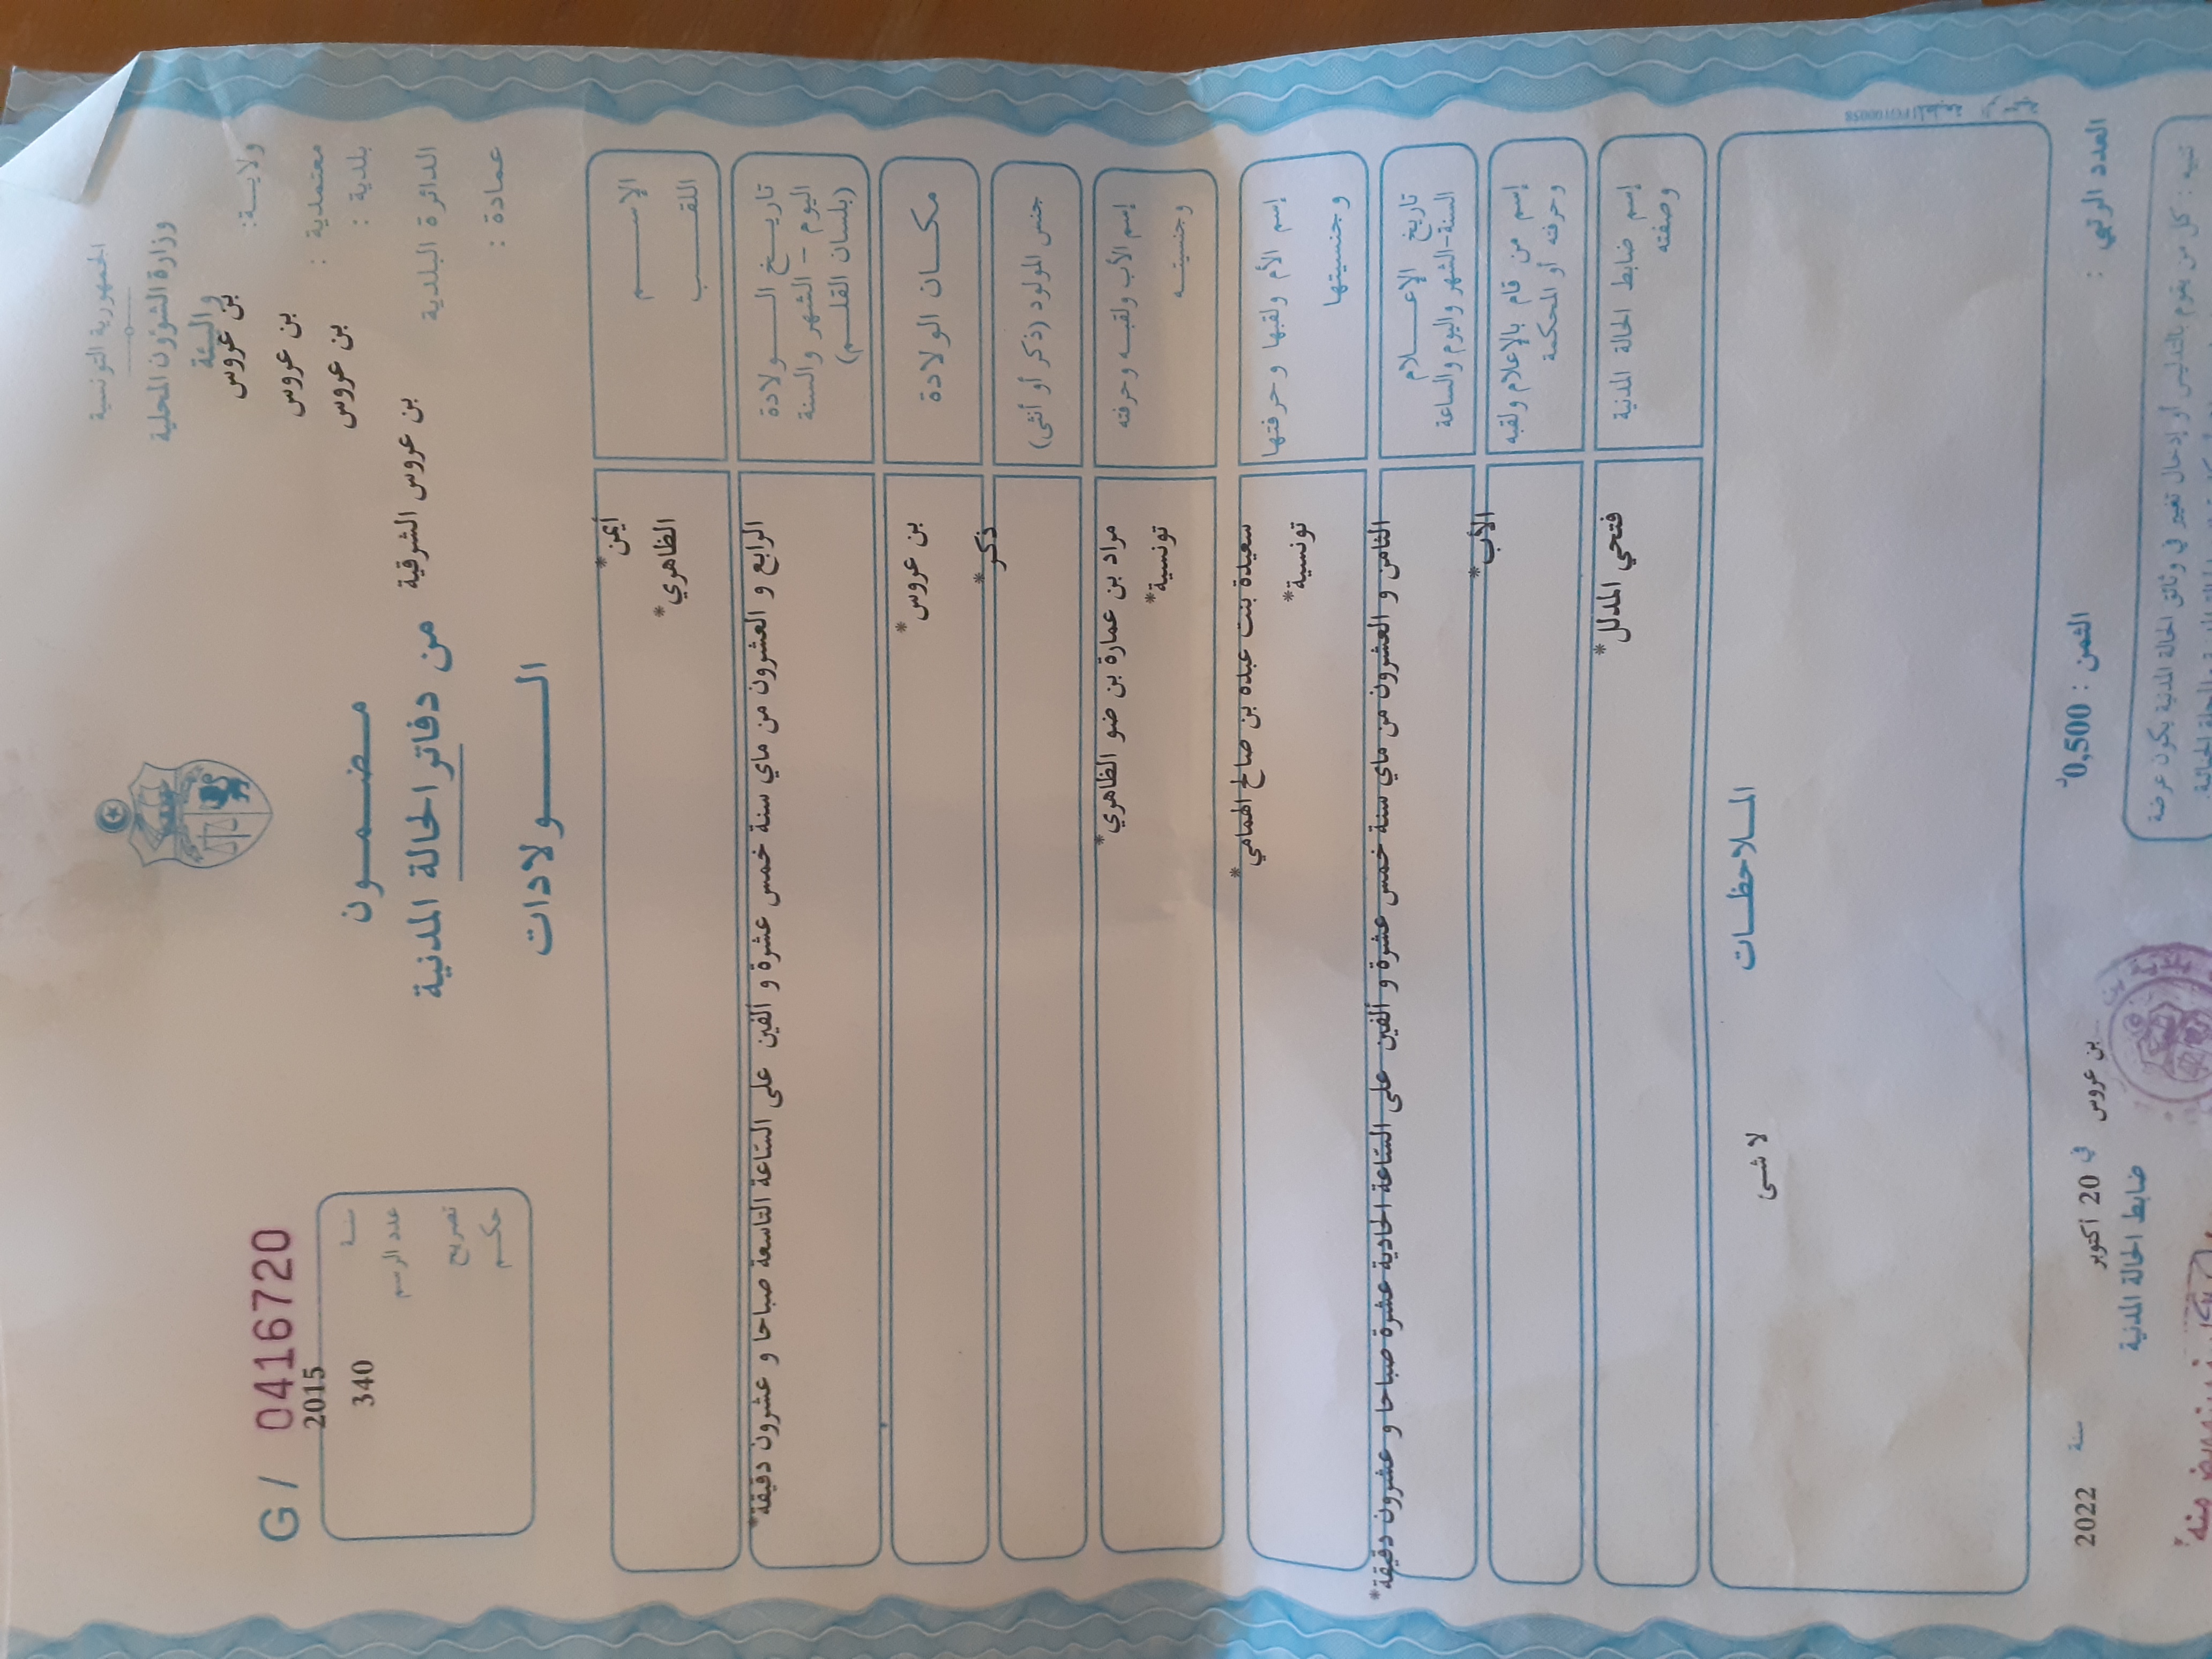 الجمهورية التونسية
وزارة الشؤون المحلية
والبيئة
ولايـــة: بن عروس
معتمدية : بن عروس
بلدية : بن عروس
الدائرة البلدية بن عروس الشرقية
عمادة :
مـضـمـــون
من دفاتر الحالة المدنية
الـــــولادات
G / 0416720
سنـة 2015
عدد الرسم 340
تصريح
حكـم
الإســـــم أيمن*
اللقـــــب الظاهري*
تاريـــخ الـــــولادة
اليوم - الشهر والسنة
(بلسان القلــم)
الرابع و العشرون من ماي سنة خمس عشرة و ألفين على السّاعة التاسعة صباحا و عشرون دقيقة*
مكـــان الولادة بن عروس*
جنس المولود (ذكر أو أنثى) ذكر*
إسم الأب ولقبـه وحرفته مراد بن عمارة بن ضو الظاهري*
وجنسيتـــه تونسية*
إسم الأم ولقبها وحرفتها سعيدة بنت عبده بن صالح الهمامي*
وجنسيتها تونسية*
تاريخ الإعـــــلام
السنة-الشهر واليوم والساعة
الثامن و العشرون من ماي سنة خمس عشرة و ألفين على السّاعة الحادية عشرة صباحا و عشرون دقيقة*
إسم من قام بالإعلام ولقبه
وحرفته أو المحكمة
الأب*
إسم ضابط الحالة المدنية
وصفته
فتحي المدلل*
المـــلاحظـــات
لا شئ
العدد الرتبي :
الثمن : 0,500د
بن عروس في 20 أكتوبر سنة 2022
ضابط الحالة المدنية
تنبيه : كل من يقوم بالتدليس أو إدخال تغيير في وثائق الحالة المدنية يكون عرضة